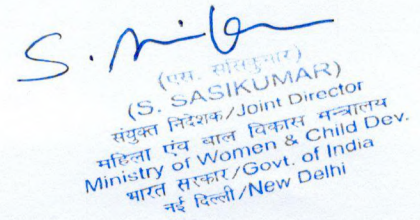 (एस. ससिकुमार)
(S. SASIKUMAR)
संयुक्त निदेशक/Joint Director
महिला एंव बाल विकास मन्त्रालय
Ministry of Women & Child Dev.
भारत सरकार/Govt. of India
नई दिल्ली/New Delhi